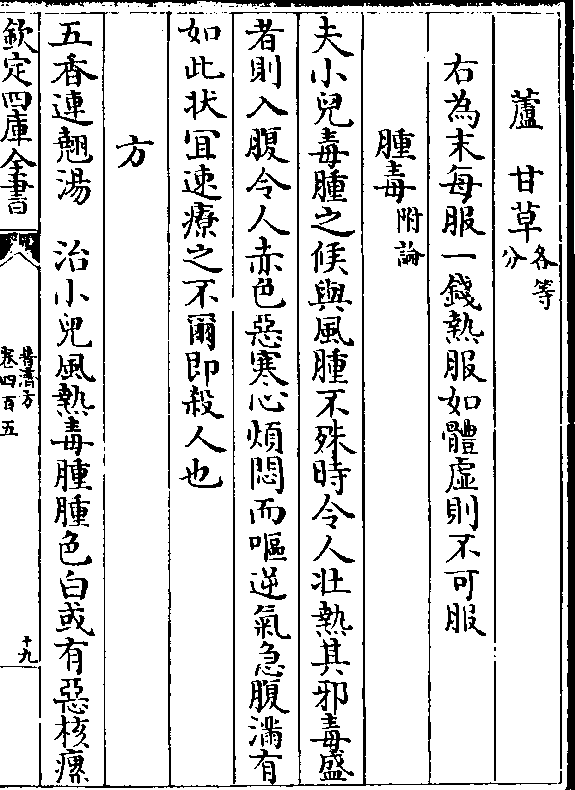 蘆　甘草各等分
右為末每服一錢熱服如體虛則不可服
腫毒附論
夫小兒毒腫之候與風腫不殊時令人壯熱其邪毒盛
者則入腹令人赤色惡寒心煩悶而嘔逆氣急腹滿有
如此狀宜速療之不爾即殺人也
方
五香連翹湯　治小兒風熱毒腫腫色白或有惡核瘰
欽定四庫全書
普濟方
卷四百五
十九